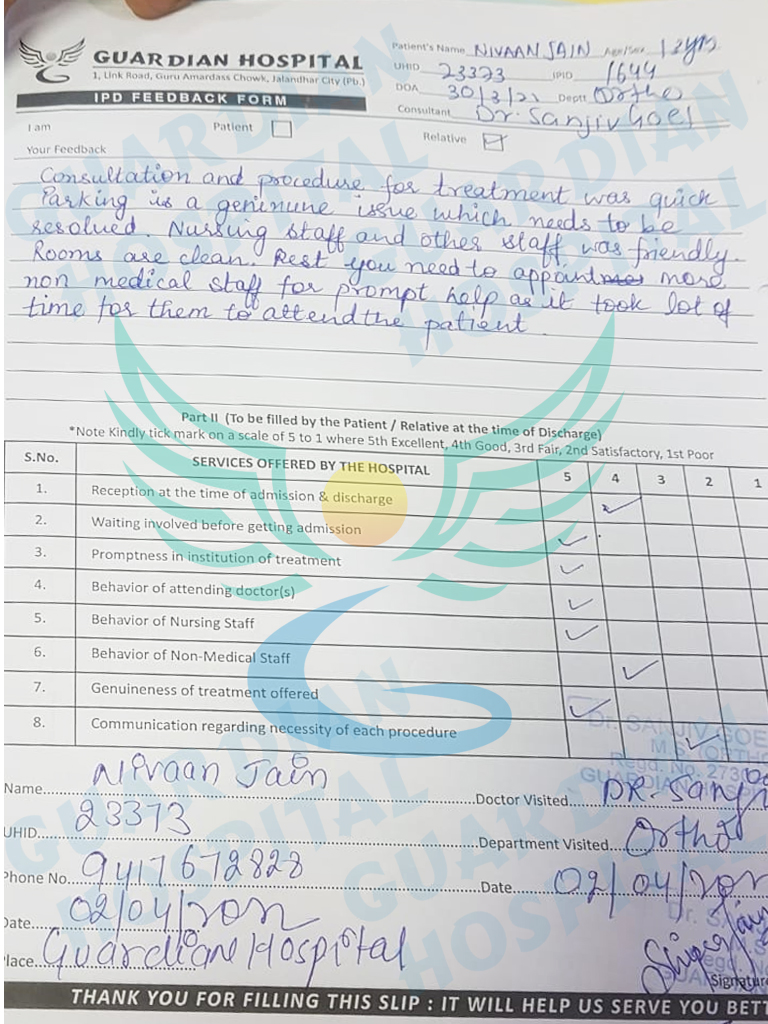 GUARDIAN HOSPITAL
1, Link Road, Guru Amardass Chowk, Jalandhar City (Pb.)
IPD FEEDBACK FORM
Patient's Name NIVAAN JAIN Age/Sex 12yrs
UHID 23373 IPID 1644
DOA 30/3/21 Deptt Ortho
Consultant Dr. Sanjiv Goel
I am Patient Relative
Your Feedback
Consultation and procedure for treatment was quick
Parking is a geninune issue which needs to be
resolved. Nursing staff and other staff was friendly.
Rooms are clean. Rest you need to appoint more
non medical staff for prompt help as it took lot of
time for them to attend the patient.
Part II (To be filled by the Patient / Relative at the time of Discharge)
*Note Kindly tick mark on a scale of 5 to 1 where 5th Excellent, 4th Good, 3rd Fair, 2nd Satisfactory, 1st Poor
S.No. SERVICES OFFERED BY THE HOSPITAL 5 4 3 2 1
1. Reception at the time of admission & discharge
2. Waiting involved before getting admission
3. Promptness in institution of treatment
4. Behavior of attending doctor(s)
5. Behavior of Nursing Staff
6. Behavior of Non-Medical Staff
7. Genuineness of treatment offered
8. Communication regarding necessity of each procedure
Dr. SANJIV GOE
M.S. (ORTHO
Regd. No. 273
GUARDIAN
Name Nivaan Jain Doctor Visited DR. Sanj
UHID 23373 Department Visited Ortho
Phone No. 9417672828 Date 02/04/
Date 02/04/
lace Guardiane Hospital
Signature
THANK YOU FOR FILLING THIS SLIP : IT WILL HELP US SERVE YOU BETT
GUARDIAN HOSPITAL